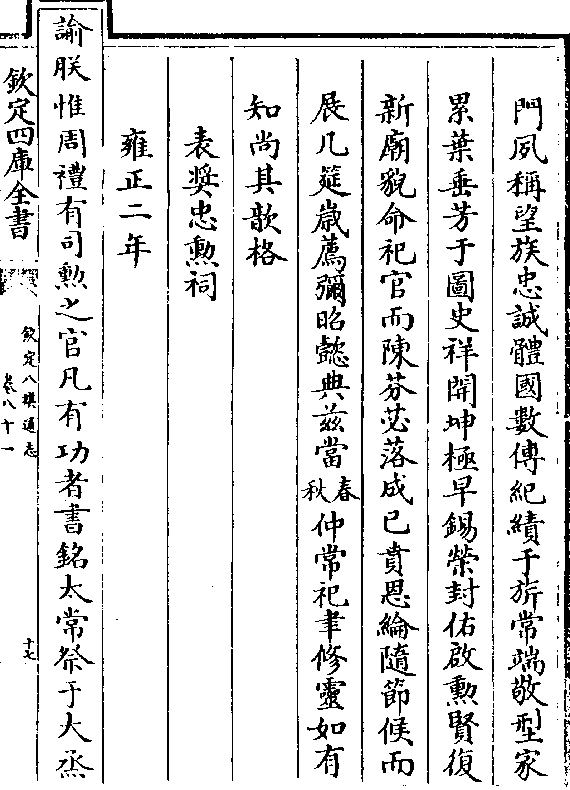 門夙稱望族忠誠體國數傳紀績于旂常端敬型家
累葉垂芳于圖史祥開坤極早錫榮封佑啟勲賢復
新廟貌命祀官而陳芬苾落成已賁恩綸隨節候而
展几筵歲薦彌昭懿典兹當春秋仲常祀聿修靈如有
知尚其歆格
表奨忠勲祠
雍正二年
諭朕惟周禮有司勲之官凡有功者書銘太常祭于大烝
欽定四庫全書
欽定八旗通志
卷八十一
十七